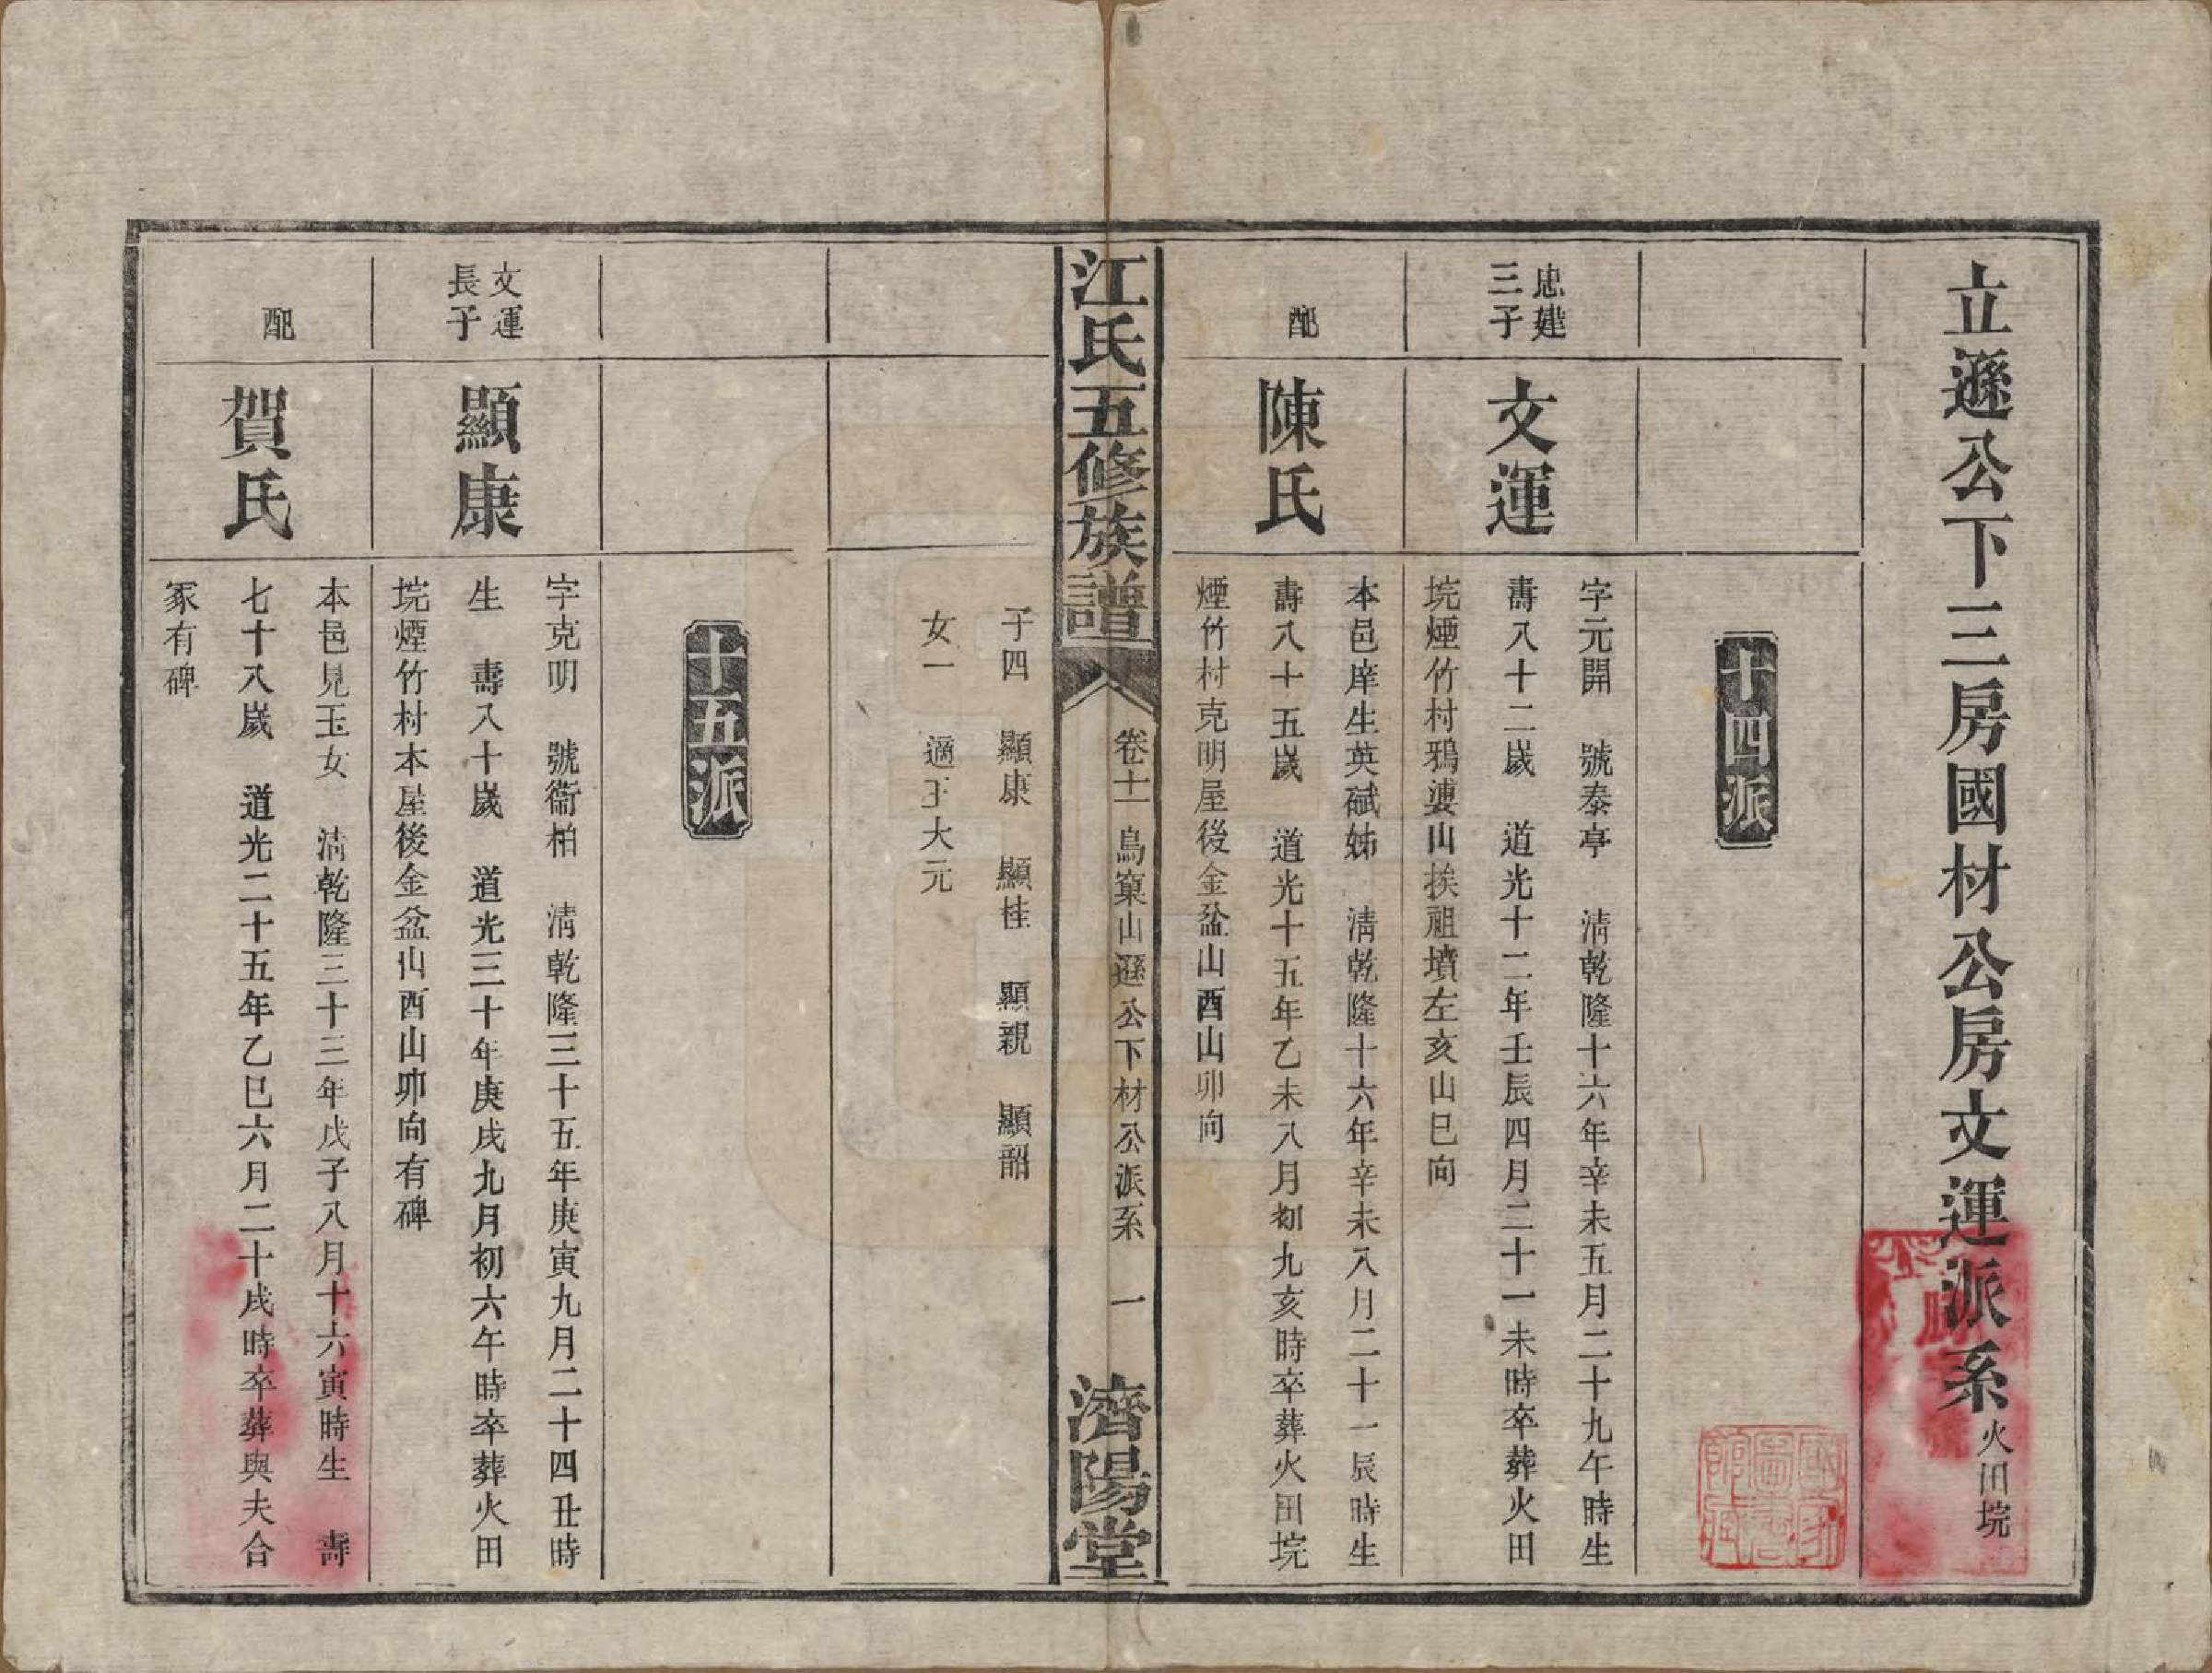 立遜公下三房國材公房文運派系火田垸
十四派
忠建
三子
文運
字元開 號泰亭 淸乾隆十六年辛未五月二十九午時生
壽八十二歲 道光十二年壬辰四月二十一未時卒葬火田
垸煙竹村鴉婁山挨祖墳左亥山巳向
配
陳氏
本邑庠生英碔姊 淸乾隆十六年辛未八月二十一辰時生
壽八十五歲 道光十五年乙未八月初九亥時卒葬火田垸
煙竹村克明屋後金盆山酉山卯向
江氏五修族譜
卷十一烏窠山遜公下材公派系 一
濟陽堂
子四 顯康 顯桂 顯親 顯韶
女一 適王大元
十五派
文運
長子
顯康
字克明 號衞柏 淸乾隆三十五年庚寅九月二十四丑時
生 壽八十歲 道光三十年庚戌九月初六午時卒葬火田
垸煙竹村本屋後金盆山酉山卯向有碑
配
賀氏
本邑見玉女 淸乾隆三十三年戊子八月十六寅時生 壽
七十八歲 道光二十五年乙巳六月二十戌時卒葬與夫合
冢有碑